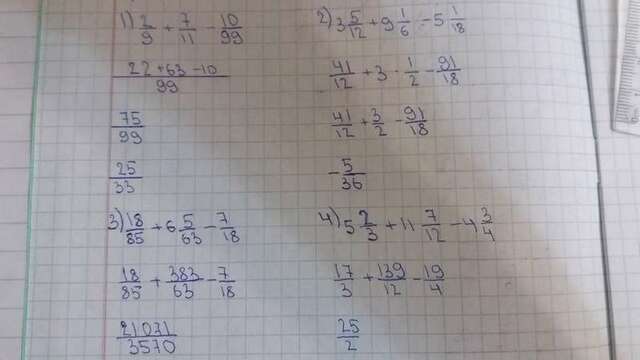 1) 2/9 + 7/11 - 10/99
22+63-10/99
75/99
25/33
2) 3 5/12 + 9 1/6 - 5 1/18
41/12 + 3 · 1/2 - 91/18
41/12 + 3/2 - 91/18
-5/36
3) 18/85 + 6 5/63 - 7/18
18/85 + 383/63 - 7/18
21071/3570
4) 5 2/3 + 11 7/12 - 4 3/4
17/3 + 139/12 - 19/4
25/2